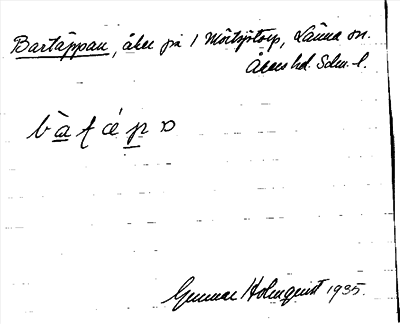 Bartäppan, åker på 1 Mörbystorp, Länna sn.
Åkers hd. Sdm. l.
Gunnar Holmquist 1935.